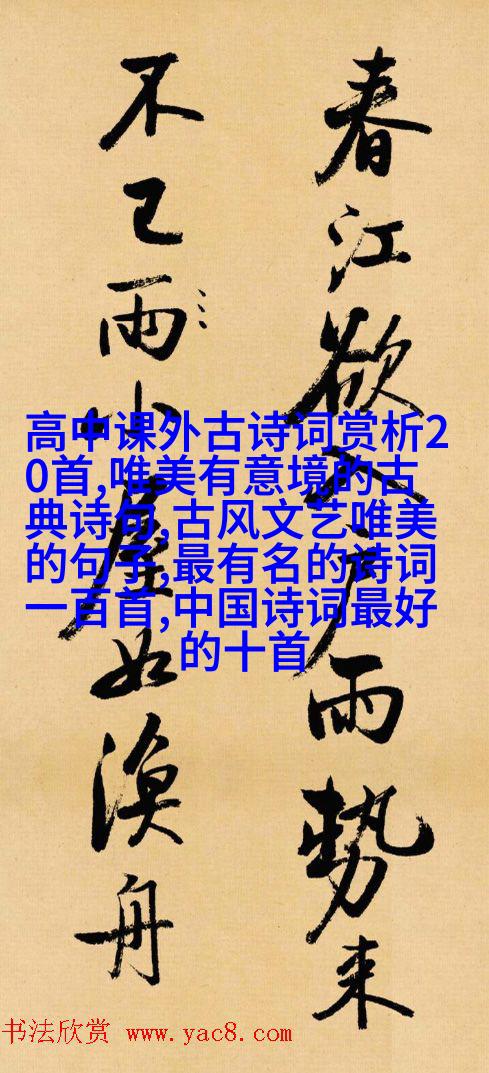 春江欲入户雨勢来
不已雨小屋如漁舟
高中课外古诗词赏析2
0首,唯美有意境的古
典诗句,古风文艺唯美
的句子,最有名的诗词
一百首,中国诗词最好
的十首
书法欣赏 www.yac8.com